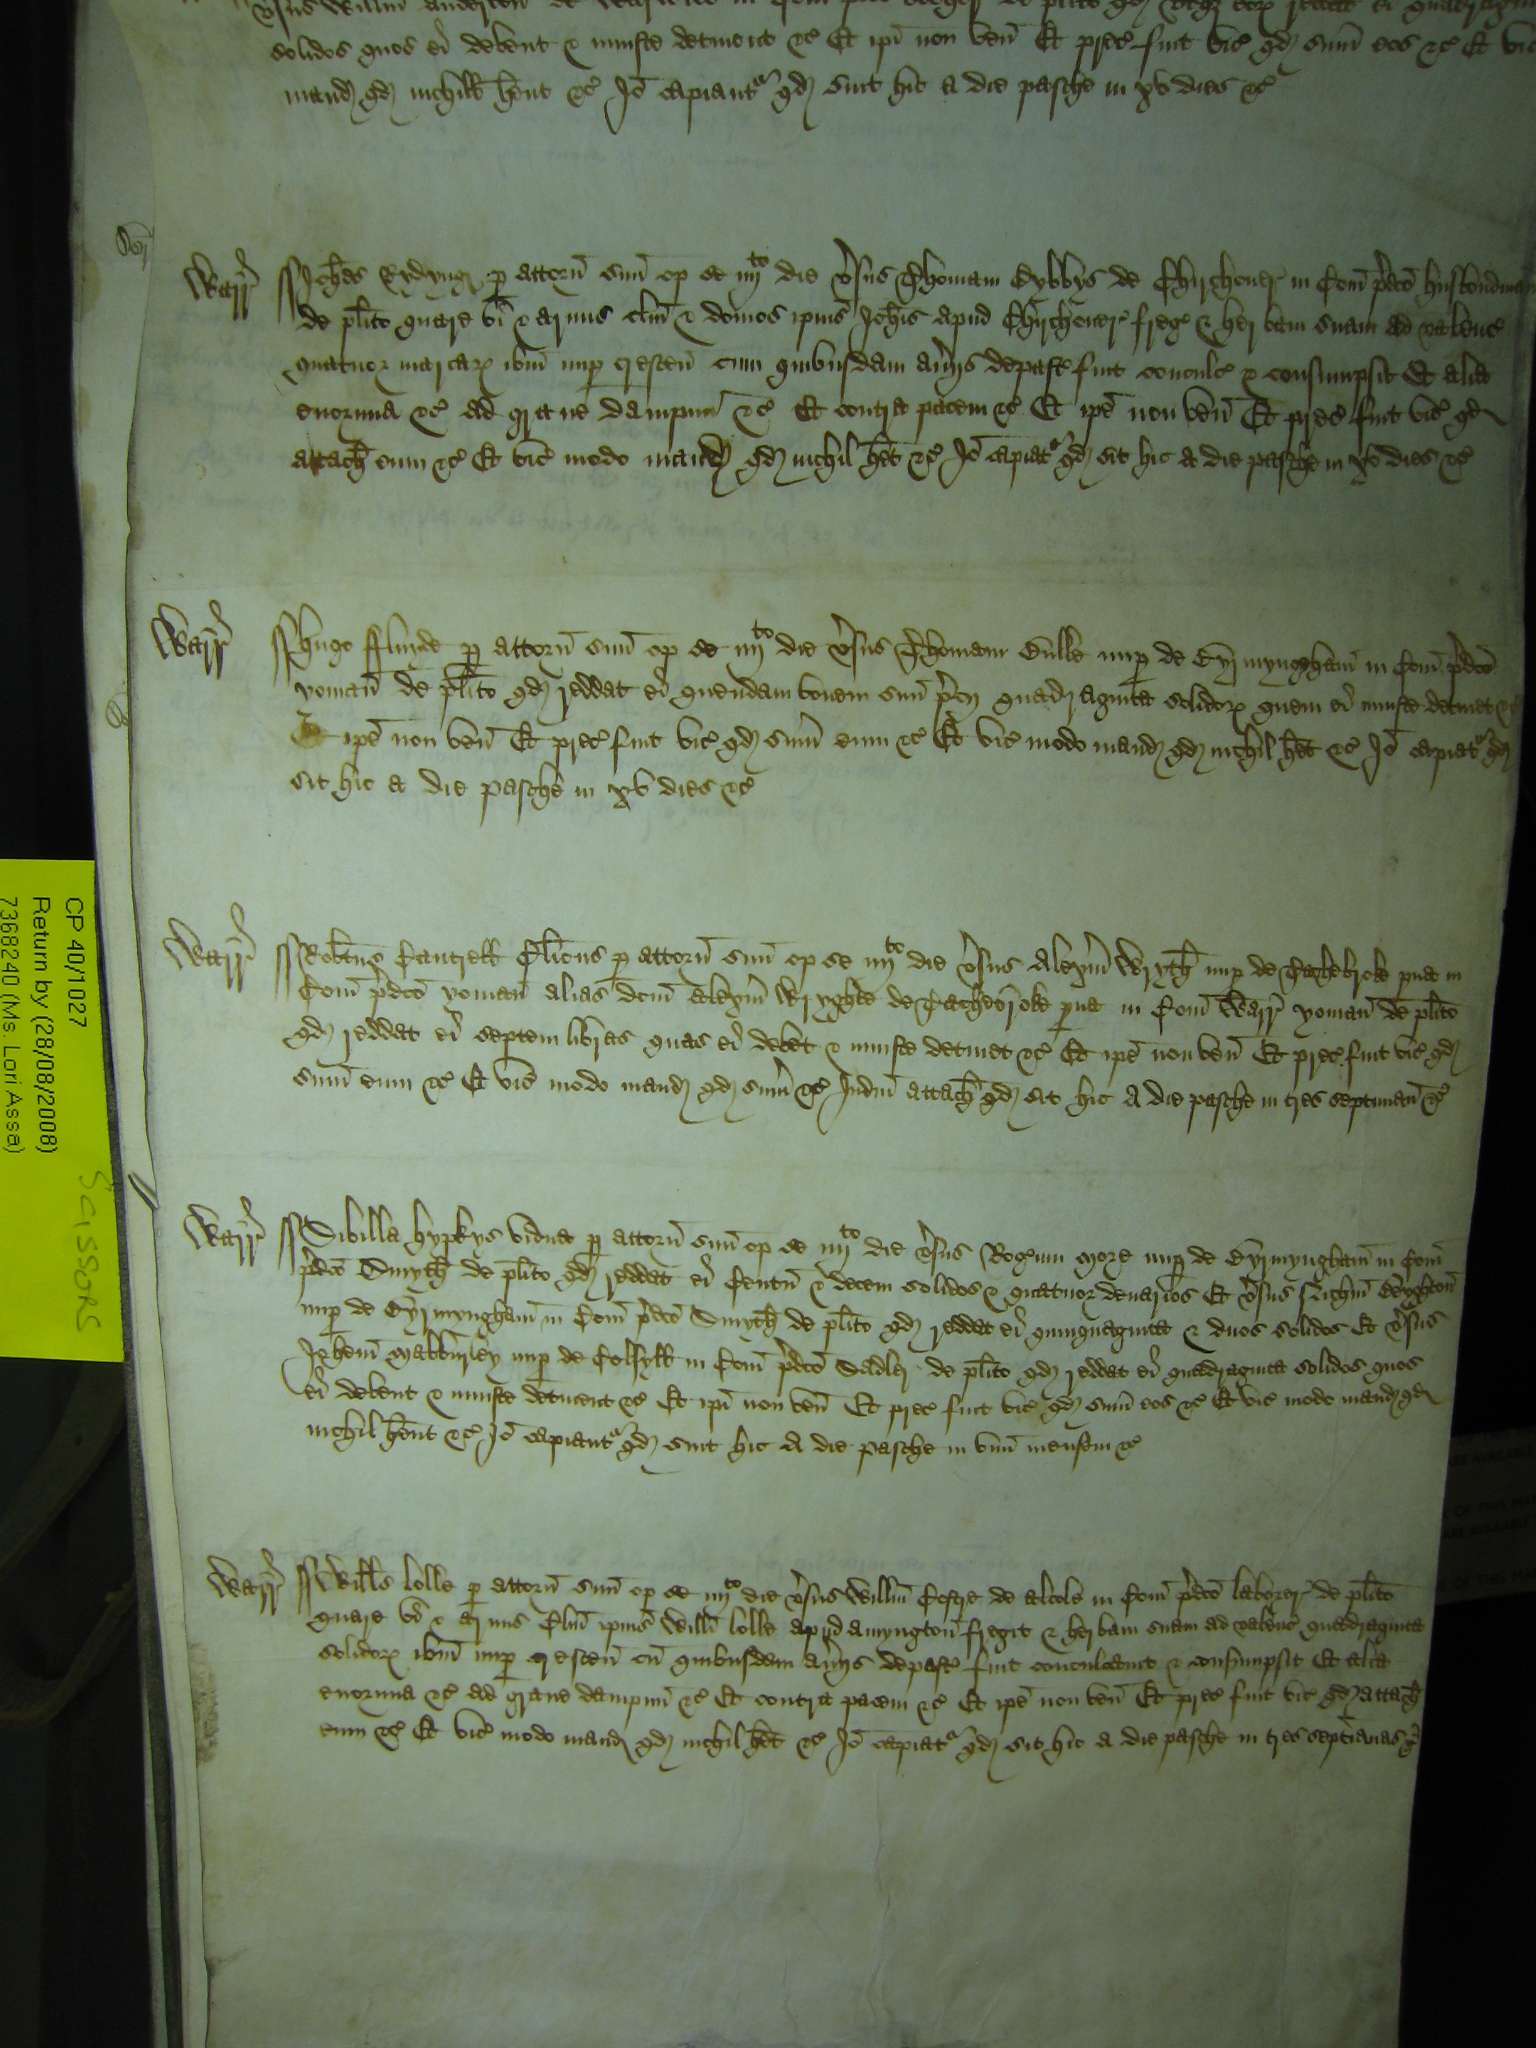 solidos quos ei debent & iniuste detinent &c Et ipi non ven Et prec fuit vic qd sum eos &c Et vic
mand qd nichil hent &c Io capiant qd sint hic a die pasche in xv dies &c
Warr Johes Rydyng p attorn suu op se iiijto die vsus Thomam Dybbys de Chircheover in Com pdco husbondman
de plito quare vi & armis clm & domos ipius Johis apud Chircheover freg & herbam suam ad valenc
quatuor marcar ibm nup crescen cum quibusdam aviis depast fuit conculc & consumpsit Et alia
enormia &c ad grave dampnu &c Et contra pacem &c Et ipe non ven Et prec fuit vic qd
attach eum &c Et vic modo mand qd nichil het &c Io capiat qd sit hic a die pasche in xv dies &c
Warr Hugo p attorn suu op se iiijto die vsus Thomam Bulle nup de Byrmyngham in Com pdco
yoman de plito qd reddat ei quendam bovem suu pcii quadraginta solidor quem ei iniuste detinet &c
Et ipe non ven Et prec fuit vic qd sum eum &c Et vic modo mand qd nichil het &c Io capiat qd
sit hic a die pasche in xv dies &c
Warr Robtus Cantrell Clicus p attorn suu op se iiijto die vsus Alexm Wryth nup de Tachebroke pua in
Com pdco yoman alias dcm Alexm Wryghte de Tachebroke pua in Com Warr yoman de plito
qd reddat ei septem libras quas ei debet & iniuste detinet &c Et ipe non ven Et prec fuit vic qd
sum eum &c Et vic modo mand qd sum &c Judm attach qd sit hic A die pasche in tres septiman &c
Warr Sibilla hypkys vidua p attorn suu op se iiijto die vsus Rogerum More nup de Byrmyngham in Com
pdco Smyth de plito qd reddat ei Centu & decem solidos & quatuor denarios Et vsus Richm Deyghton
nup de Byrmyngham in Com pdco Smyth de plito qd reddat ei quinquaginta & duos solidos Et vsus
Johem Mabburley nup de Colsyll in Com pdco Sadler de plito qd reddat ei quadraginta solidos quos
ei debent & iniuste detinent &c Et ipi non ven Et prec fuit vic qd sum eos &c Et vic modo mand qd
nichil hent &c Io capiant qd sint hic A die pasche in unu mensem &c
Warr Wills lolle p attorn suu op se iiijto die vsus Willm de Alcote in Com pdco laborer de plito
quare vi & armis Clm ipius Willi lolle apud Amyngton fregit & herbam suam ad valenc quadraginta
solidor ibm nup crescen cu quibusdam aviis depast fuit conculcavit & consumpsit Et alia
enormia &c ad grave dampnu &c Et contra pacem &c Et ipe non ven Et prec fuit vic qd attach
eum &c Et vic modo mand qd nichil het &c Io capiat qd sit hic a die pasche in tres septianas &c
CP 40/1027
Return by (28/08/2008)
7368240 (Ms. Lori Assa)
SCISSORS